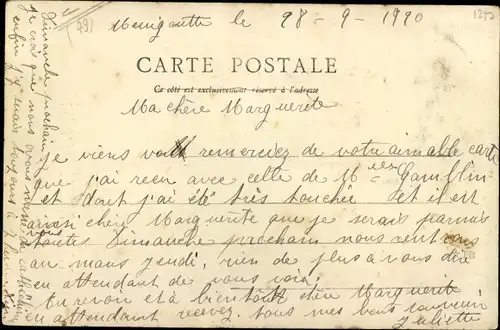 Menigoutte le 28-9-1920
CARTE POSTALE
Ce côté est exclusivement réservé à l'adresse
Ma chère Marguerite
je viens vous remerciez de votre aimable carte
que j'ai recu avec celle de Melles Gamblin
et dont j'ai été très touchée et il est
ainsi chère Marguerite que je serais parmis
vous toutes Dimanche prochain nous rentrons
au mans jeudi, rien de plus a vous dire
en attendant de vous voir.
Au revoir et à bientôt chère Marguerite
en attendant recevez tous mes bons souvenir
Juliette
Dimanche prochain
je crois que nous avons
enfin j'y serais toujours à
791